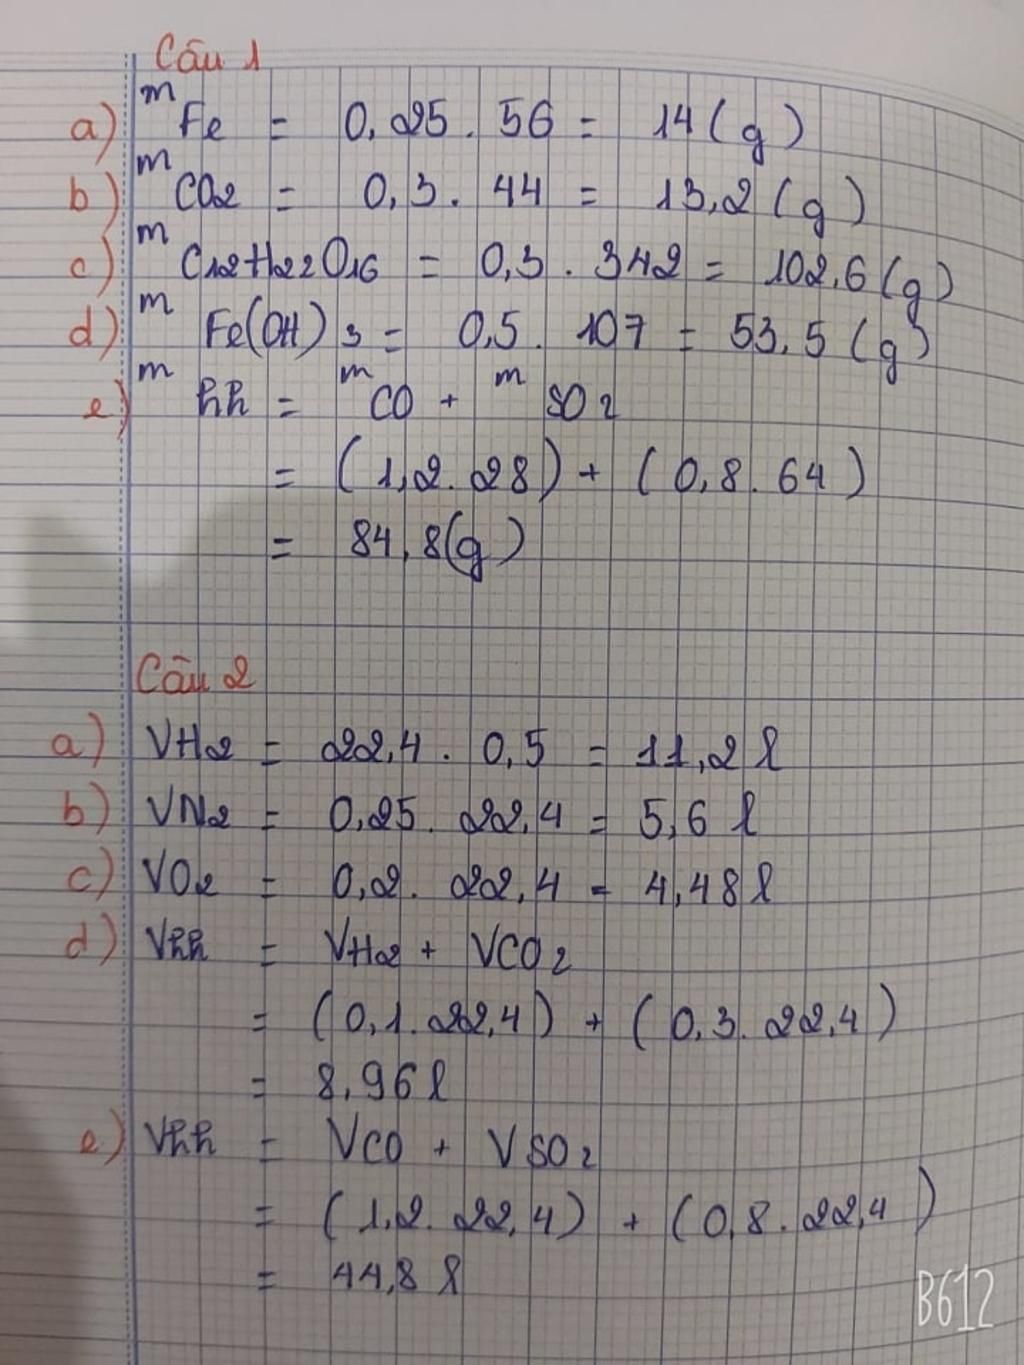 Câu 1
a) mFe = 0,25 . 56 = 14 (g)
b) mCO2 = 0,3 . 44 = 13,2 (g)
c) mC12H22O16 = 0,3 . 342 = 102,6 (g)
d) mFe(OH)3 = 0,5 . 107 = 53,5 (g)
e) mhh = mCO + mSO2
= (1,2 . 28) + (0,8 . 64)
= 84,8 (g)
Câu 2
a) VH2 = 22,4 . 0,5 = 11,2 l
b) VN2 = 0,25 . 22,4 = 5,6 l
c) VO2 = 0,2 . 22,4 = 4,48 l
d) Vhh = VH2 + VCO2
= (0,1 . 22,4) + (0,3 . 22,4)
= 8,96 l
e) Vhh = VCO + VSO2
= (1,2 . 22,4) + (0,8 . 22,4)
= 44,8 l
B612